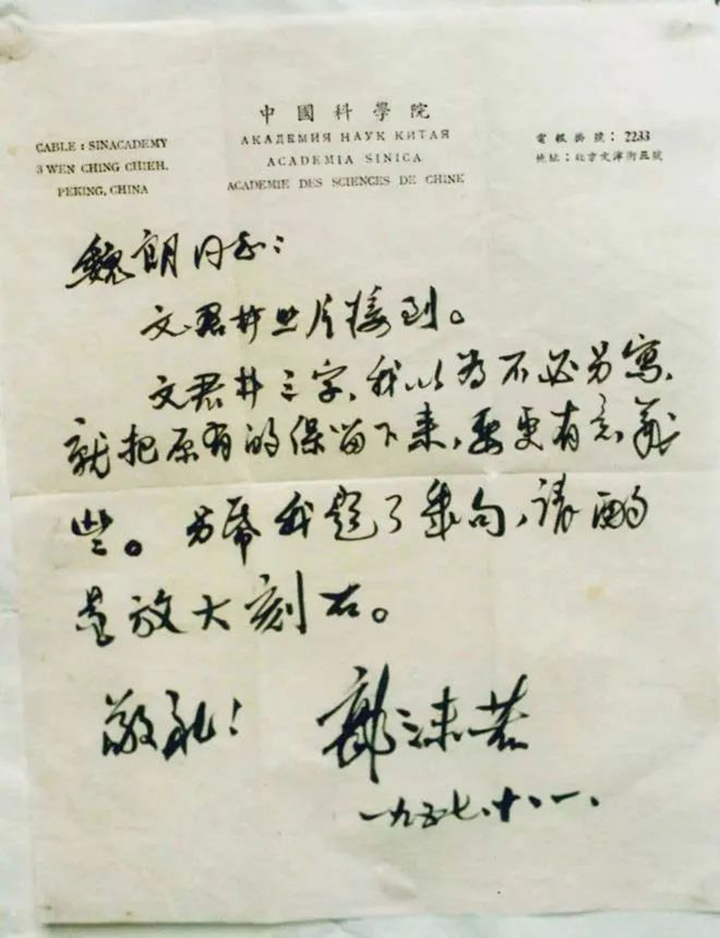 中國科學院
АКАДЕМИЯ НАУК КИТАЯ
ACADEMIA SINICA
ACADEMIE DES SCIENCES DE CHINE
CABLE : SINACADEMY
3 WEN CHING CHIEH,
PEKING, CHINA
電報掛號：2233
地址：北京文津街三號
魏朗同志：
文君井照片接到。
文君井三字，我以为不必另寫，
就把原有的保留下来，要更有意義
些。另帋我題了幾句，请酌
量放大刻石。
敬礼！
郭沫若
一九五七、十、一、